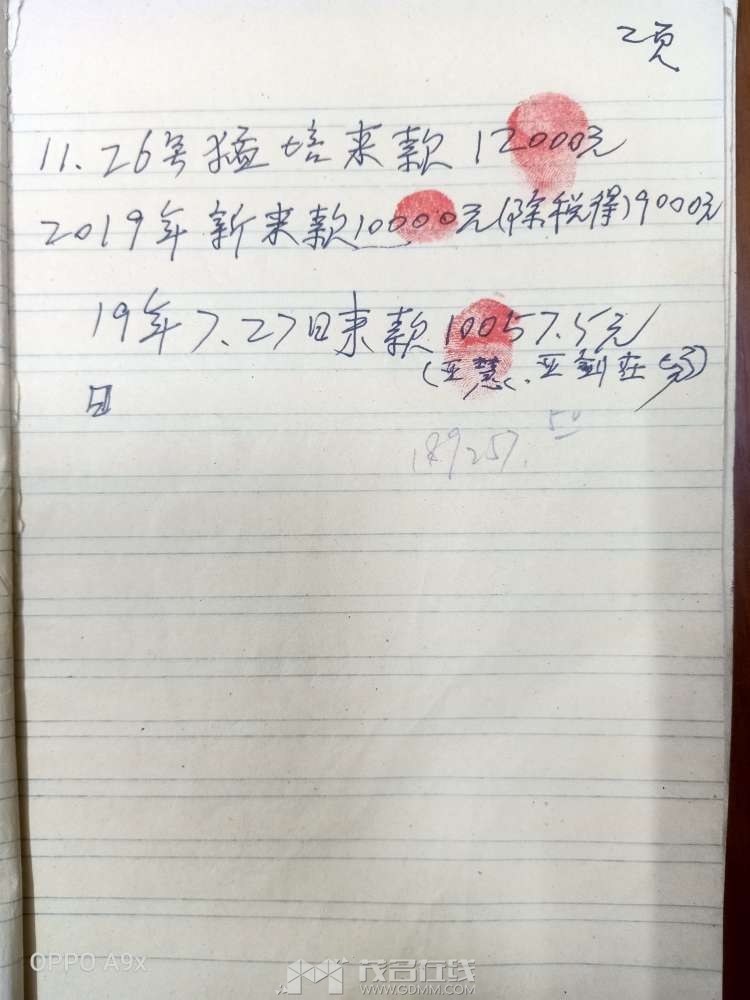 2页
11.26号猛培来款12000元
2019年新来款10000元(除税得)9000元
19年7.27日来款10057.5元
(亚慧、亚剑在
189257.50
OPPO A9x
茂名在线
WWW.GDMM.COM